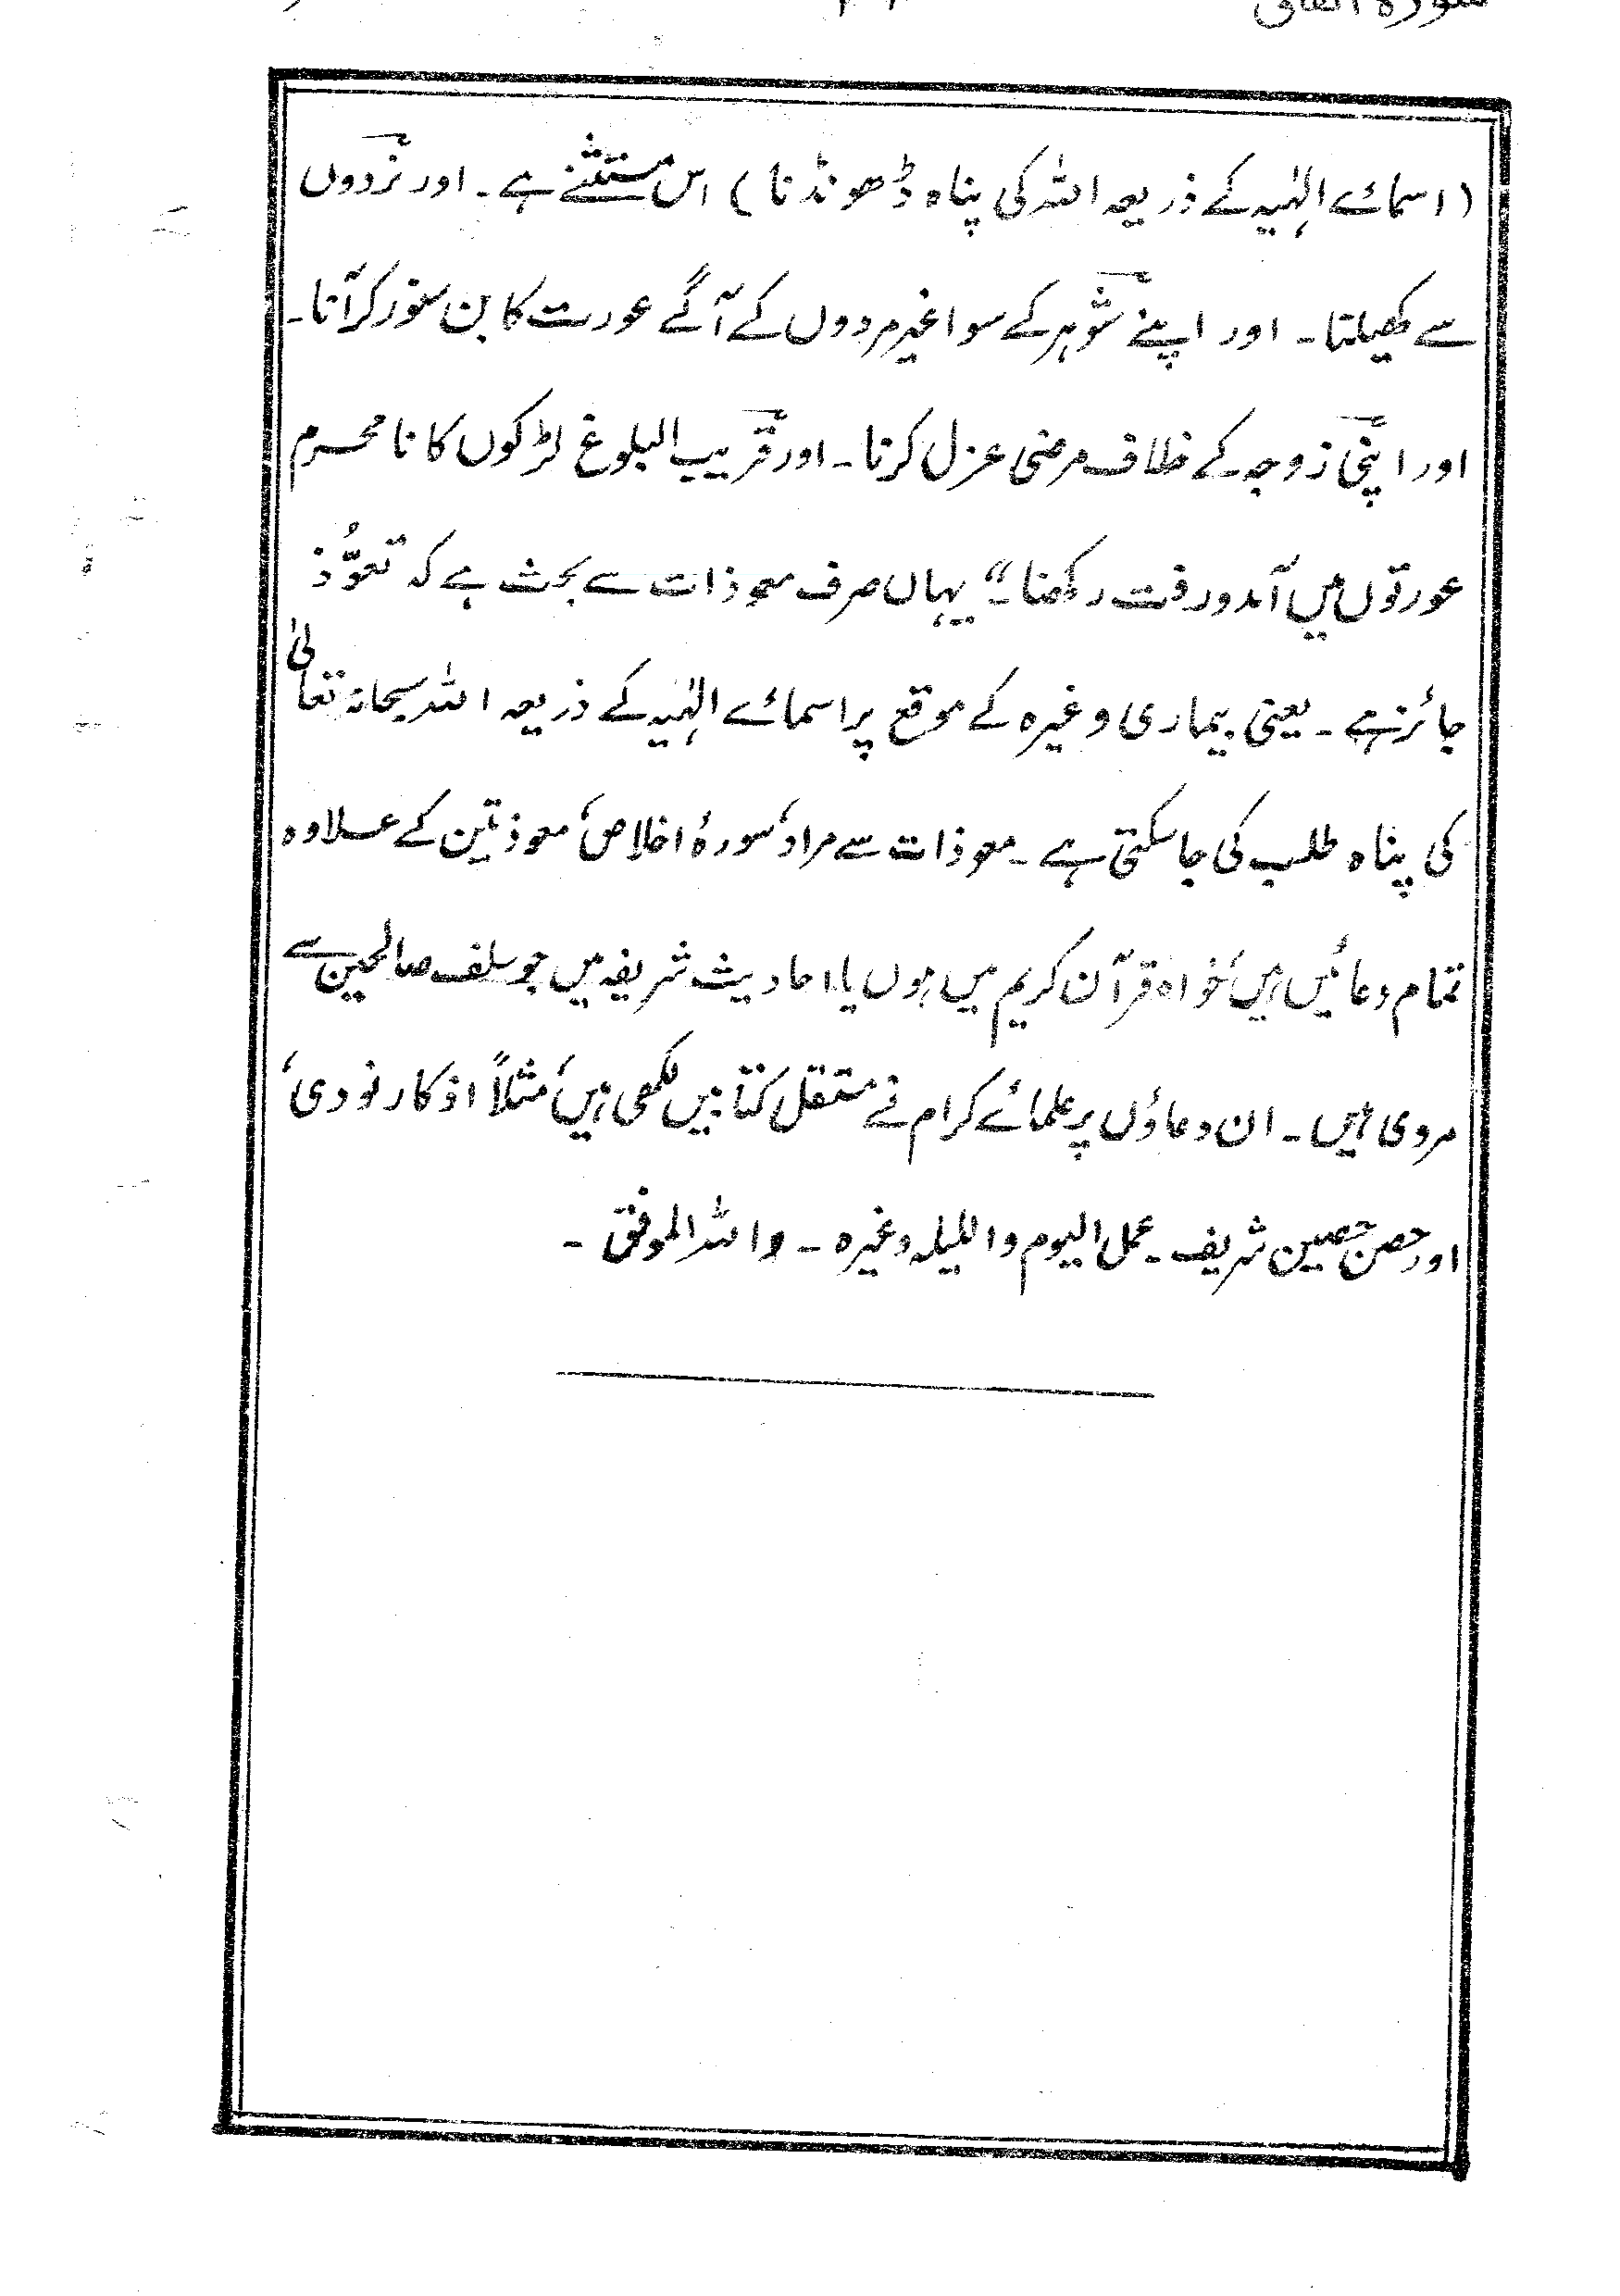 (اسمائے الٰہیہ کے ذریعہ اللہ کی پناہ ڈھونڈنا) اس مستثنےٰ ہے۔ اور نردوں
سے کھیلنا۔ اور اپنے شوہر کے سوا غیر مردوں کے آگے عورت کا بن سنور کر آنا۔
اور اپنی زوجہ کے خلاف مرضی عزل کرنا۔ اور قریب البلوغ لڑکوں کا نا محرم
عورتوں میں آمدورفت رکھنا۔“ یہاں صرف معوذات سے بحث ہے کہ تعوُّذ
جائز ہے۔ یعنی بیماری وغیرہ کے موقع پر اسمائے الٰہیہ کے ذریعہ اللہ سبحانہ تعالیٰ
کی پناہ طلب کی جا سکتی ہے۔ معوذات سے مراد، سورۂ اخلاص، معوذتین کے علاوہ
تمام دعائیں ہیں، خواہ قرآن کریم میں ہوں یا احادیث شریفہ میں جو سلف صالحین سے
مروی ہیں۔ ان دعاؤں پر علمائے کرام نے مستقل کتابیں لکھی ہیں، مثلاً اذکار نودی،
اور حصن حصین شریف۔ عمل الیوم واللیلہ وغیرہ۔ واللہ الموفق۔